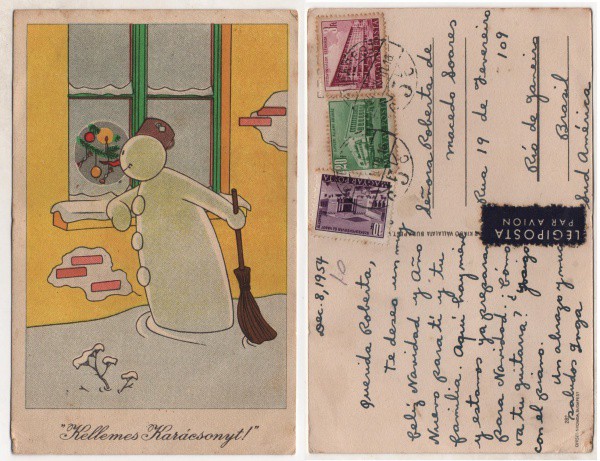 "Kellemes Karácsonyt!"
MAGYAR POSTA
20
MAGYAR POSTA
LÉGIPOSTA
PAR AVION
Señora Roberta de
Macedo Soares
Rua 19 de Fevereiro
109
Río de Janeiro
Brasil
Sud América
Dec. 8, 1954
10
Querida Roberta,
Te deseo un muy
Feliz Navidad y Año
Nuevo para tí y tu
familia. Aquí hay nieve
y estamos ya preparando
para Navidad. ¿ Cómo
va tu guitarra?
con el piano.
Un abrazo y muchos
saludos Inga